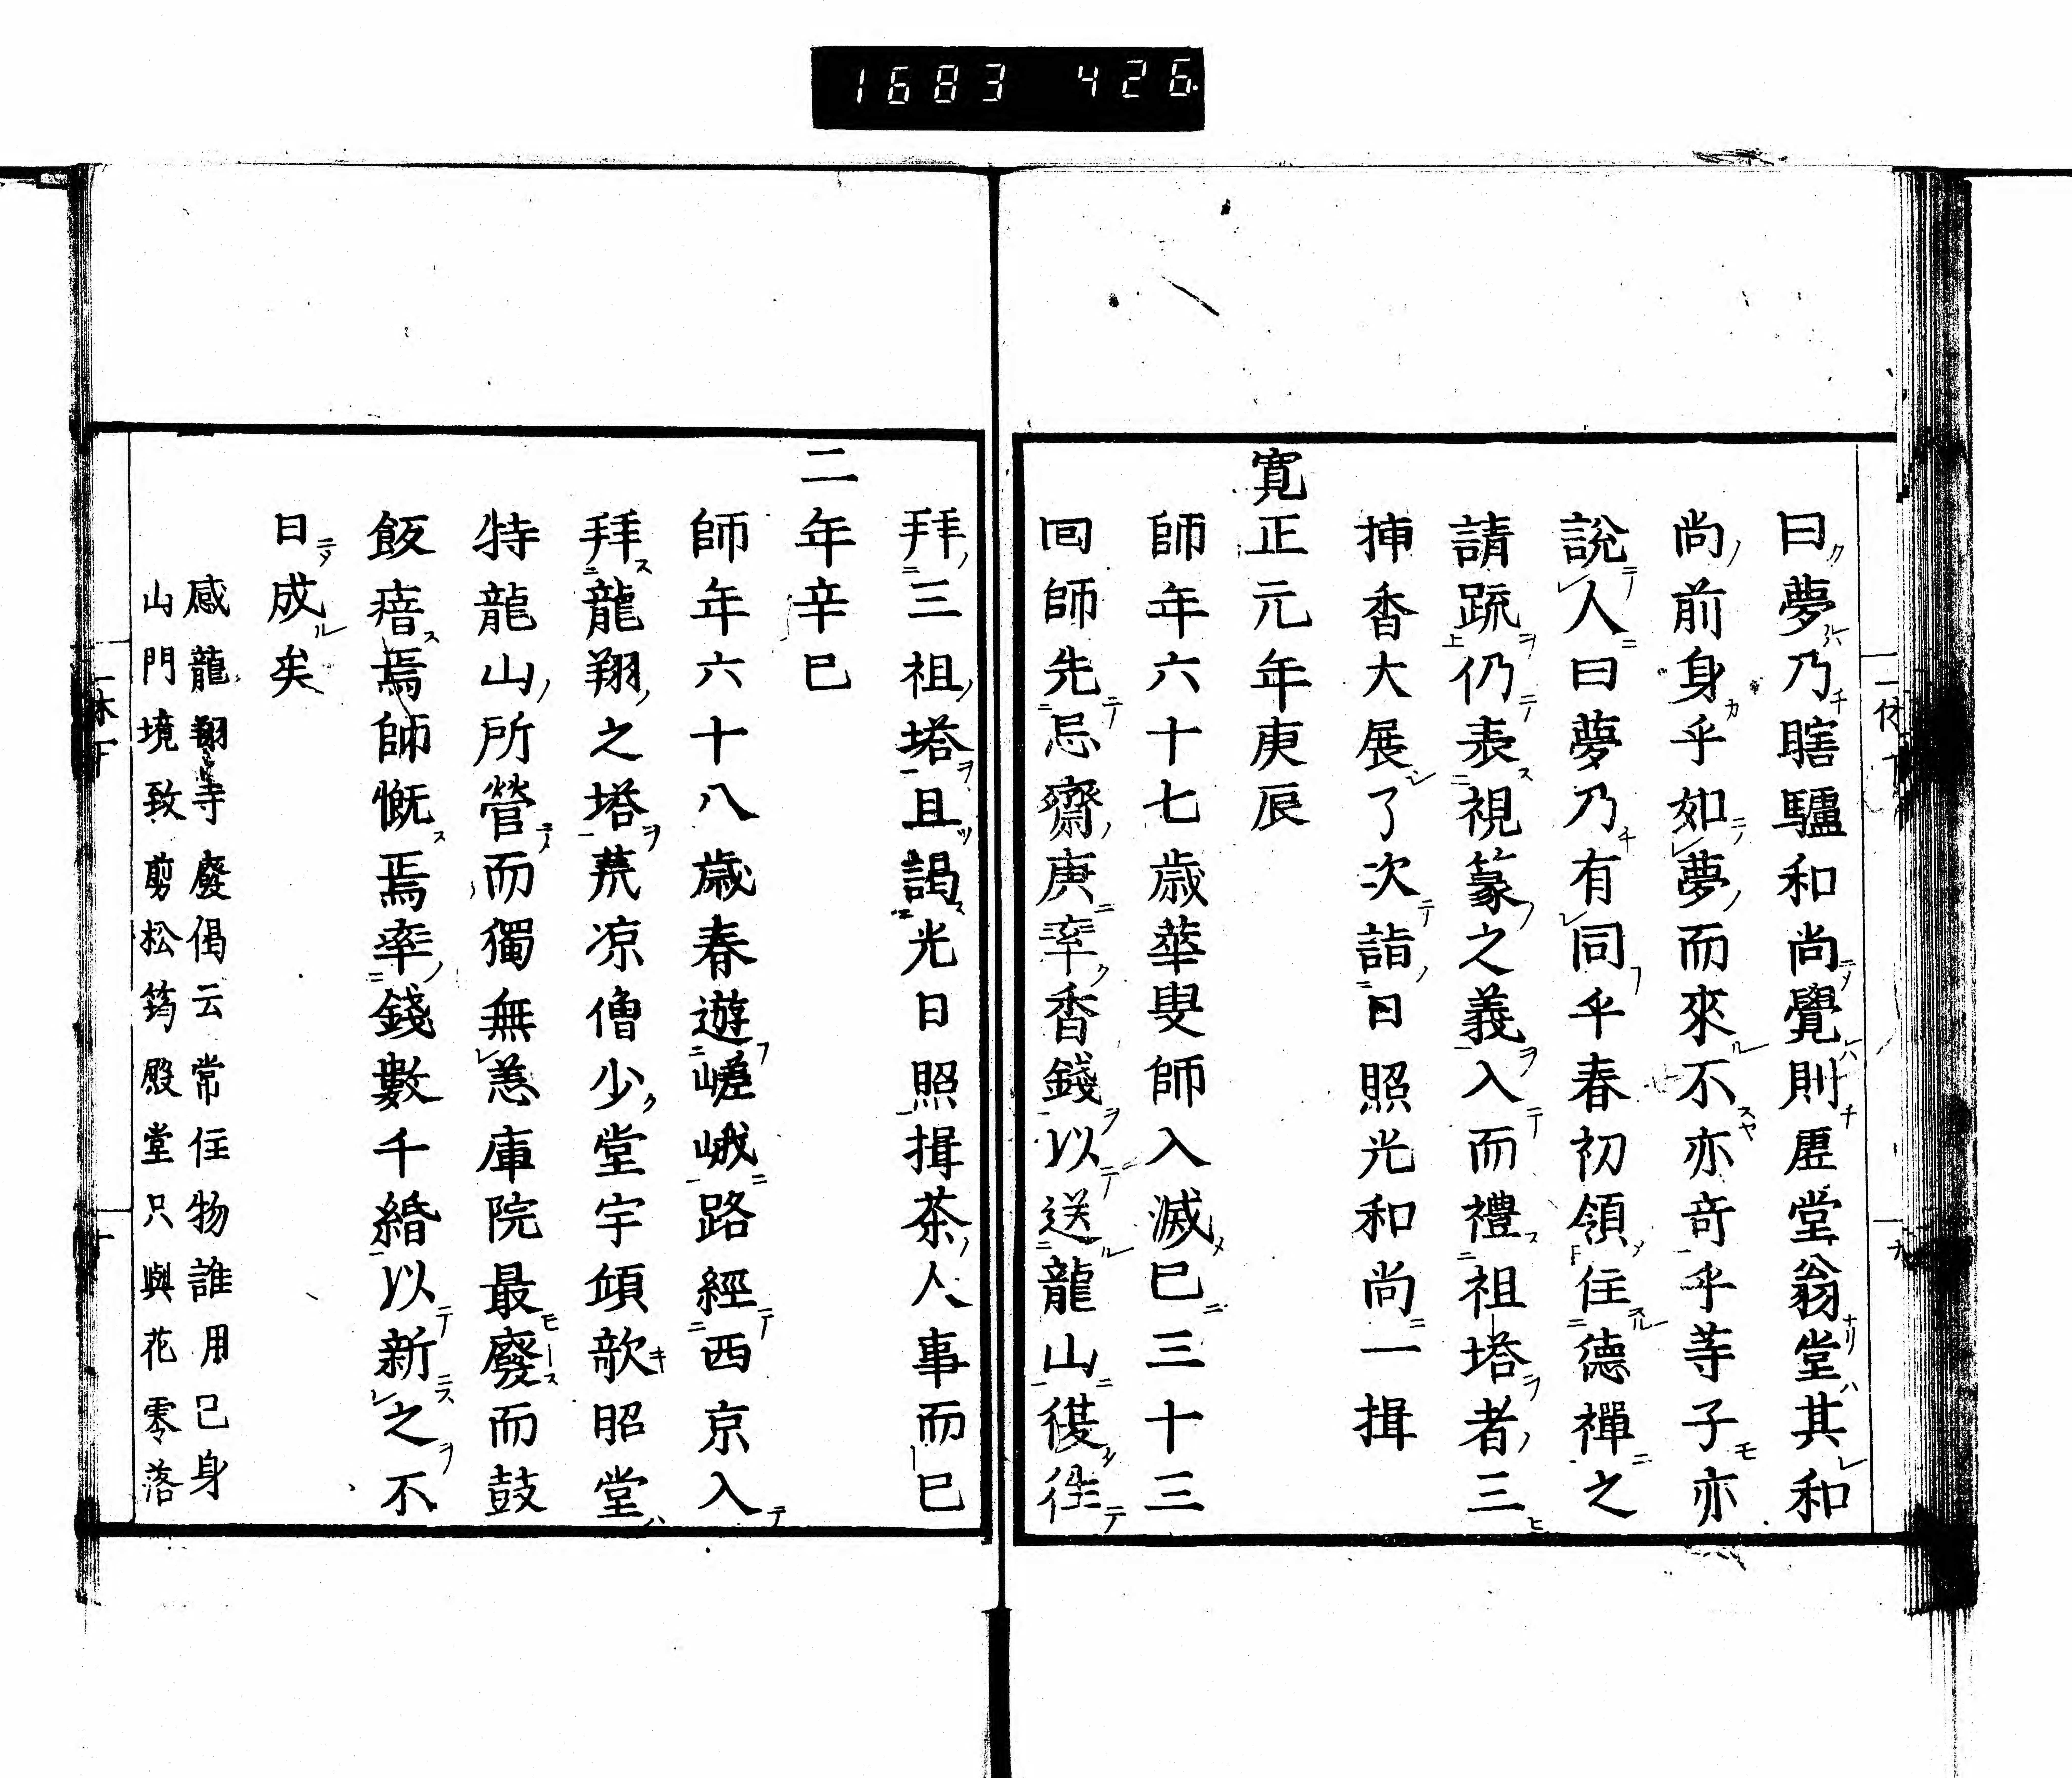 1683 426.
曰夢乃瞎驢和尚覺則虗堂翁堂其和
尚前身乎如夢而來不亦竒乎等子亦
說人曰夢乃有同乎春初領住德禪之
請䟽仍表視篆之義入而禮祖塔者三
揷香大展了次詣日照光和尚一揖
寛正元年庚辰
師年六十七歳華叟師入滅巳三十三
囬師先忌齋庚率香錢以送龍山復徃
拜三祖塔且謁光日照揖茶人事而巳
二年辛巳
師年六十八歳春遊嵯峨路經西京入
拜龍翔之塔荒凉僧少堂宇頃欹昭堂
特龍山所營而獨無恙庫院最廢而鼓
飯瘖焉師慨焉率錢數千緡以新之不
日成矣
感龍翔寺廢偈云常住物誰用己身
山門境致剪松筠殿堂只與花零落